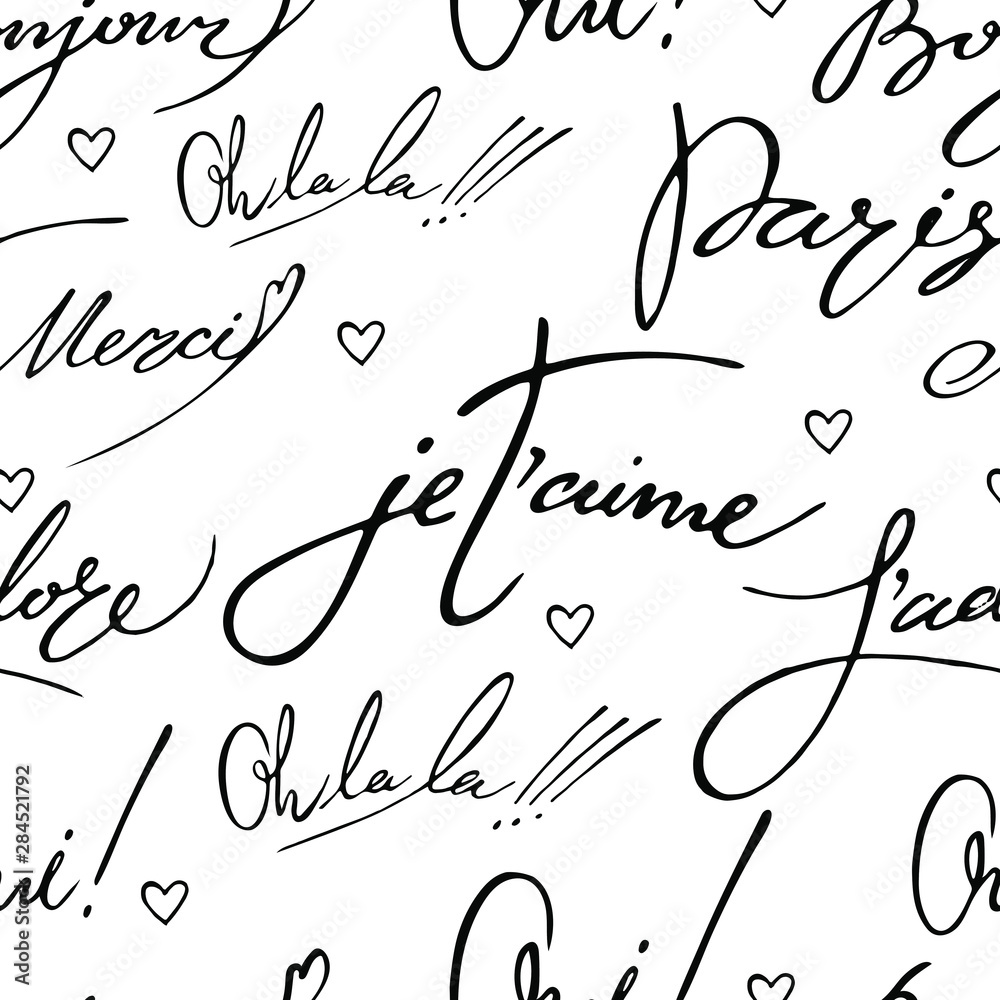 onjour
Oui!
Bo
Oh la la!!!
Paris
Merci
je t'aime
dore
J'ad
Oh la la!!!
ui!
Ou
Oui!
Adobe Stock | #284521792